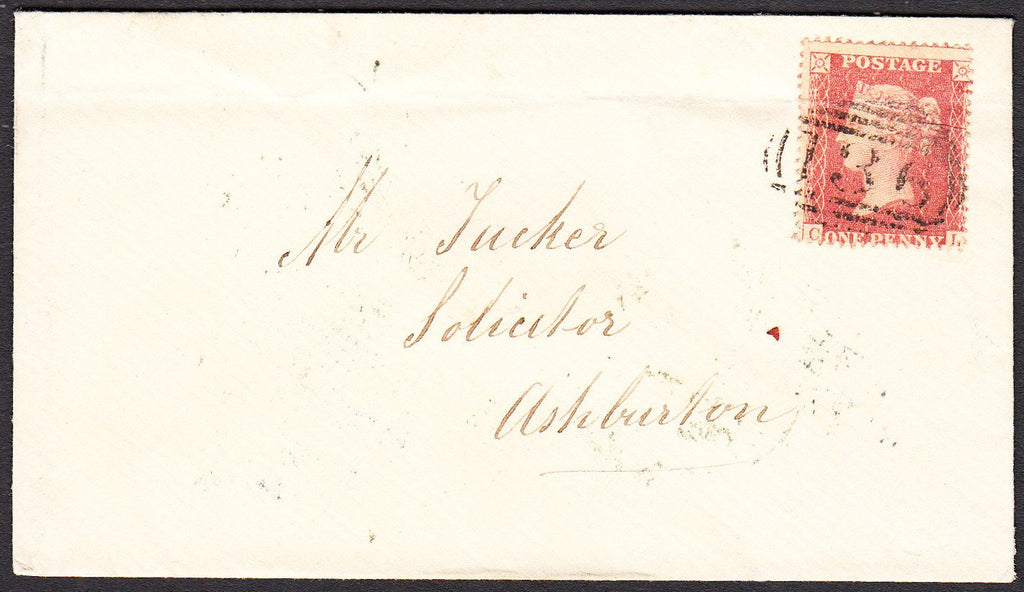 POSTAGE
36
C ONE PENNY L
Mr Tucker
Solicitor
Ashburton